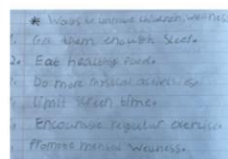 * Ways to improve children wellness
1. Get them enough sleep.
2. Eat healthy food.
Do more physical activities.
Limit screen time.
Encourage regular exercise.
Promote mental wellness.